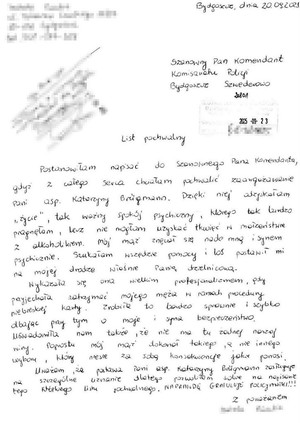 Bydgoszcz, dnia 20.09.2021
Szanowny Pan Komendant
Komisariatu Policji
Bydgoszcz Szwederowo
List pochwalny
Postanowiłam napisać do Szanownego Pana Komendanta,
gdyż z całego serca chciałam pochwalić zaangażowanie
Pani asp. Katarzyny Brügmann. Dzięki niej odzyskałam
„życie", tak ważny spokój psychiczny, którego tak bardzo
pragnęłam, lecz nie mogłam uzyskać tkwiąc w małżeństwie
z alkoholikiem. Mój mąż znęcał się nade mną i synem
psychicznie. Szukałam wszędzie pomocy i los postawił mi
na mojej drodze właśnie Panią dzielnicową.
Wykazała się ona wielkim profesjonalizmem, gdy
przyjechała zatrzymać mojego męża w ramach procedury
niebieskiej karty. Zrobiła to bardzo sprawnie i szybko
dbając przy tym o moje i syna bezpieczeństwo.
Uświadomiła nam także, że nie ma tu żadnej naszej
winy. Poprostu mój mąż dokonał takiego, a nie innego
wyboru, który niesie za sobą konsekwencje jakie ponosi.
Uważam, że postawa Pani asp. Katarzyny Brügmann zasługuje
na szczególne uznanie dlatego pozwoliłam sobie na napisanie
tego krótkiego listu pochwalnego. NAPRAWDĘ GRATULUJĘ POLICJANTKI!!!
Z poważaniem